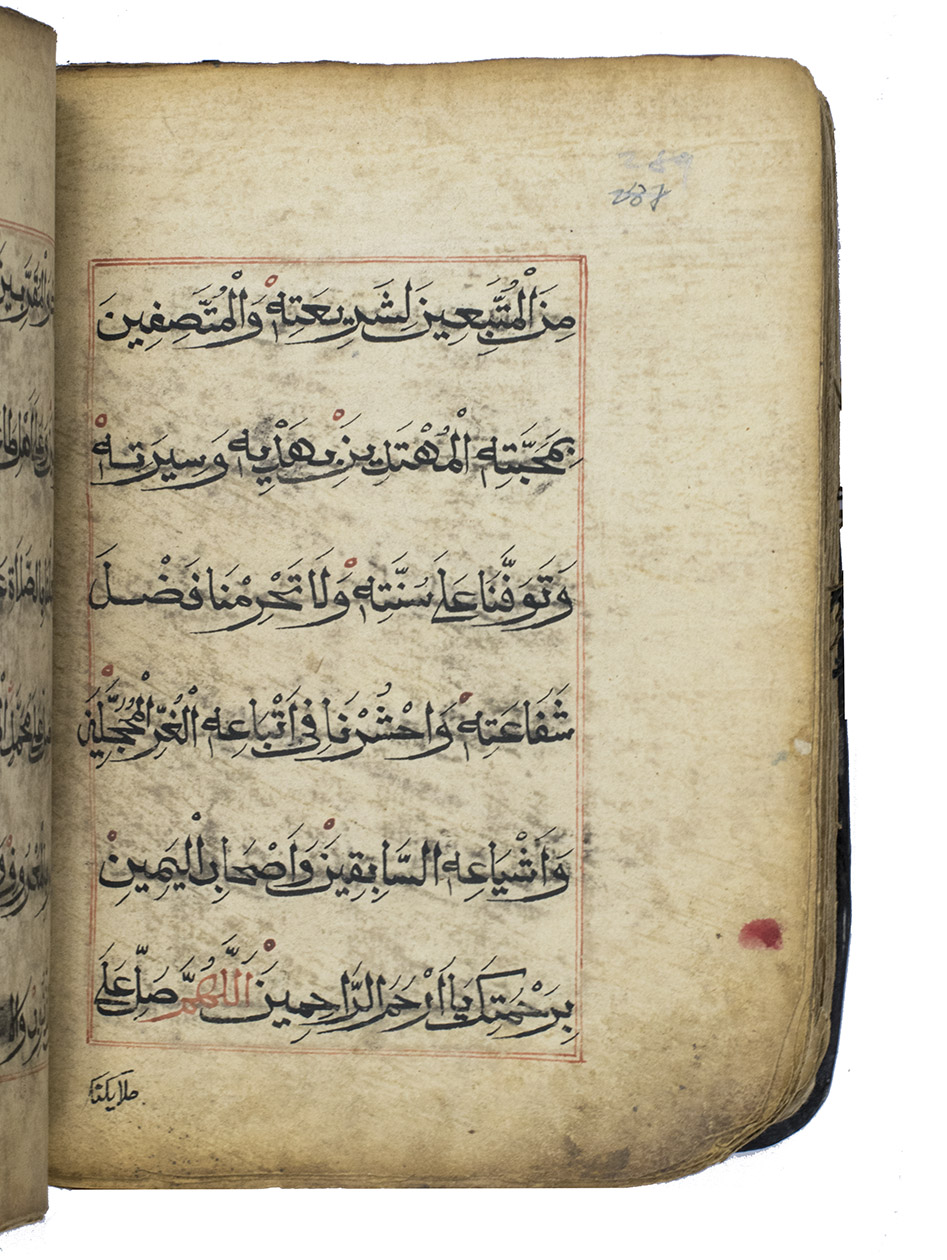 289
288
مِنَ الْمُتَّبِعِينَ لِشَرِيعَتِهِ وَالْمُتَّصِفِينَ
بِمَحَبَّتِهِ الْمُهْتَدِينَ بِهَدْيِهِ وَسِيرَتِهِ
وَتَوَفَّنَا عَلَى سُنَّتِهِ وَلَا تَحْرِمْنَا فَضْلَ
شَفَاعَتِهِ وَاحْشُرْنَا فِي اَتْبَاعِهِ الْغُرِّ الْمُحَجَّلِينَ
وَاَشْيَاعِهِ السَّابِقِينَ وَاَصْحَابِ الْيَمِينِ
بِرَحْمَتِكَ يَا اَرْحَمَ الرَّاحِمِينَ اَللّٰهُمَّ صَلِّ عَلَى
ملايكتك